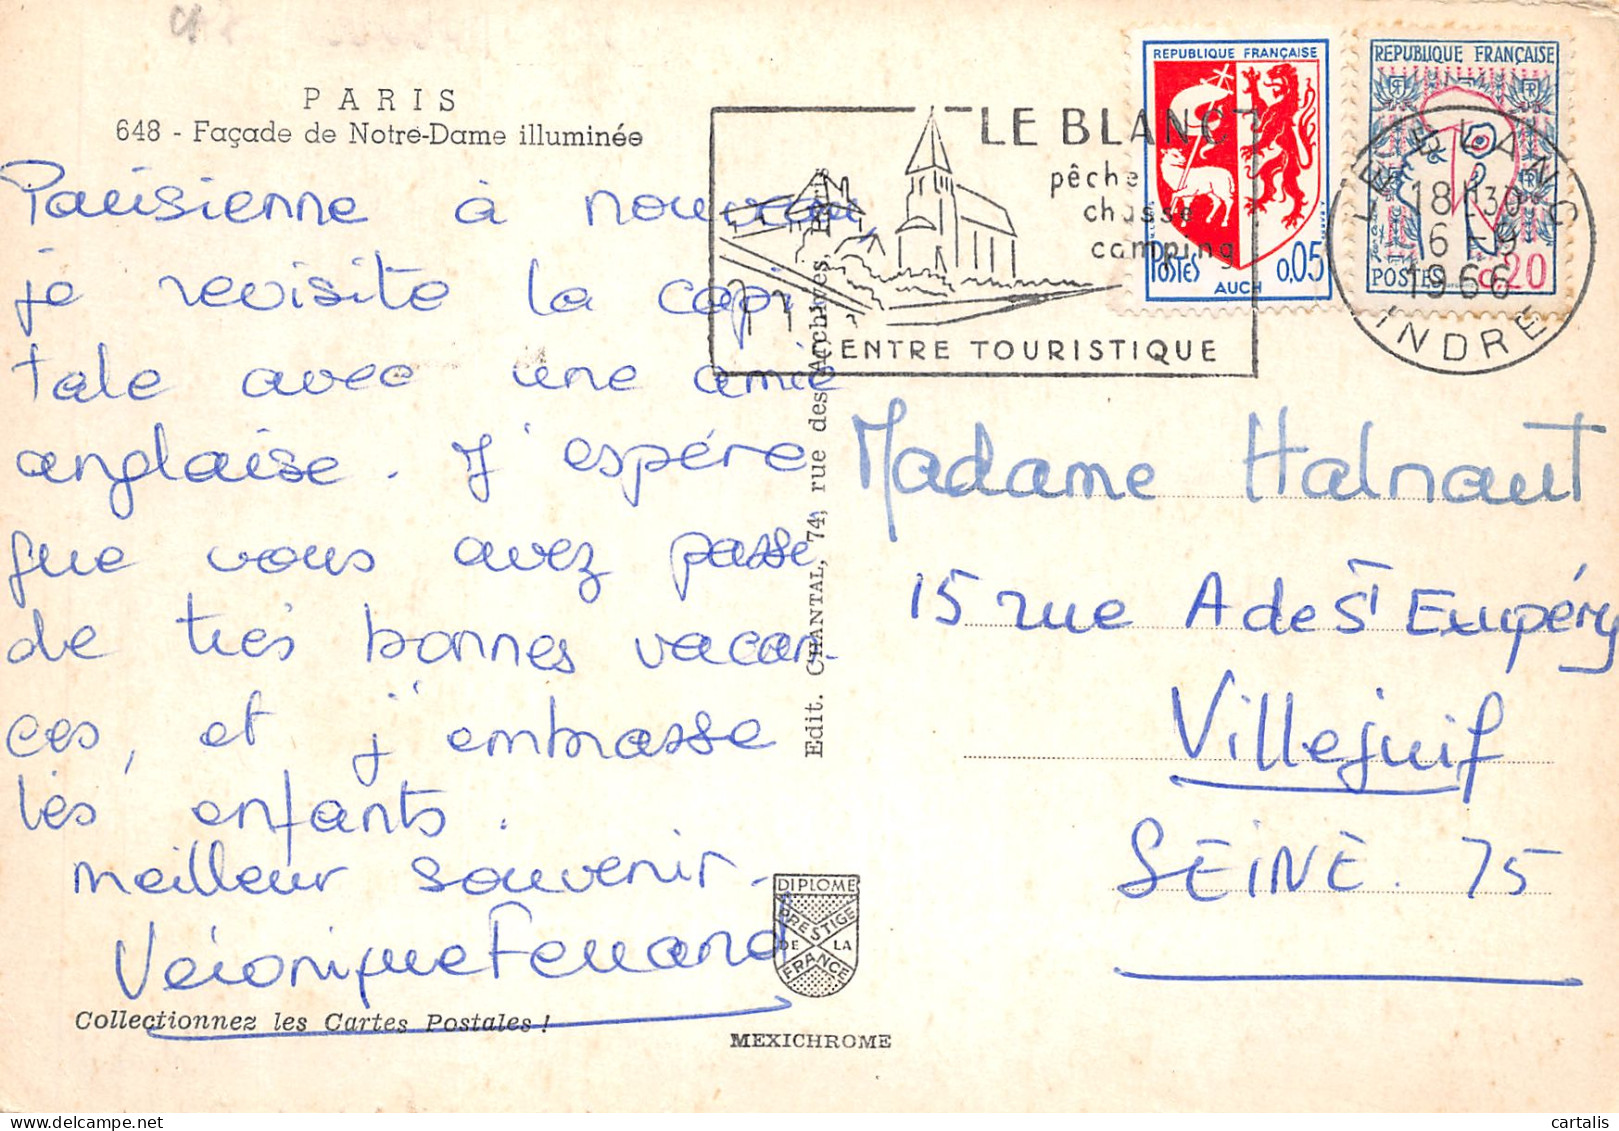 PARIS
648 - Façade de Notre-Dame illuminée
Parisienne à nouveau,
je revisite la capi
tale avec une amie
anglaise. J'espére
que vous avez passé
de très bonnes vacan-
ces, et j'embrasse
les enfants.
meilleur souvenir.
Véronique Ferrand
Collectionnez les Cartes Postales !
Edit. CHANTAL, 74, rue des Archives,
DIPLOME
PRESTIGE
DE LA
FRANCE
MEXICHROME
LE BLANC
pêche
chasse
camping
CENTRE TOURISTIQUE
REPUBLIQUE FRANÇAISE
POSTES 0,05
AUCH
REPUBLIQUE FRANÇAISE
POSTES 0,20
LE BLANC
18H30
6 -9
1966
INDRE
Madame Halnaut
15 rue A de St Exupéry
Villejuif
SEINE. 75
cartalis